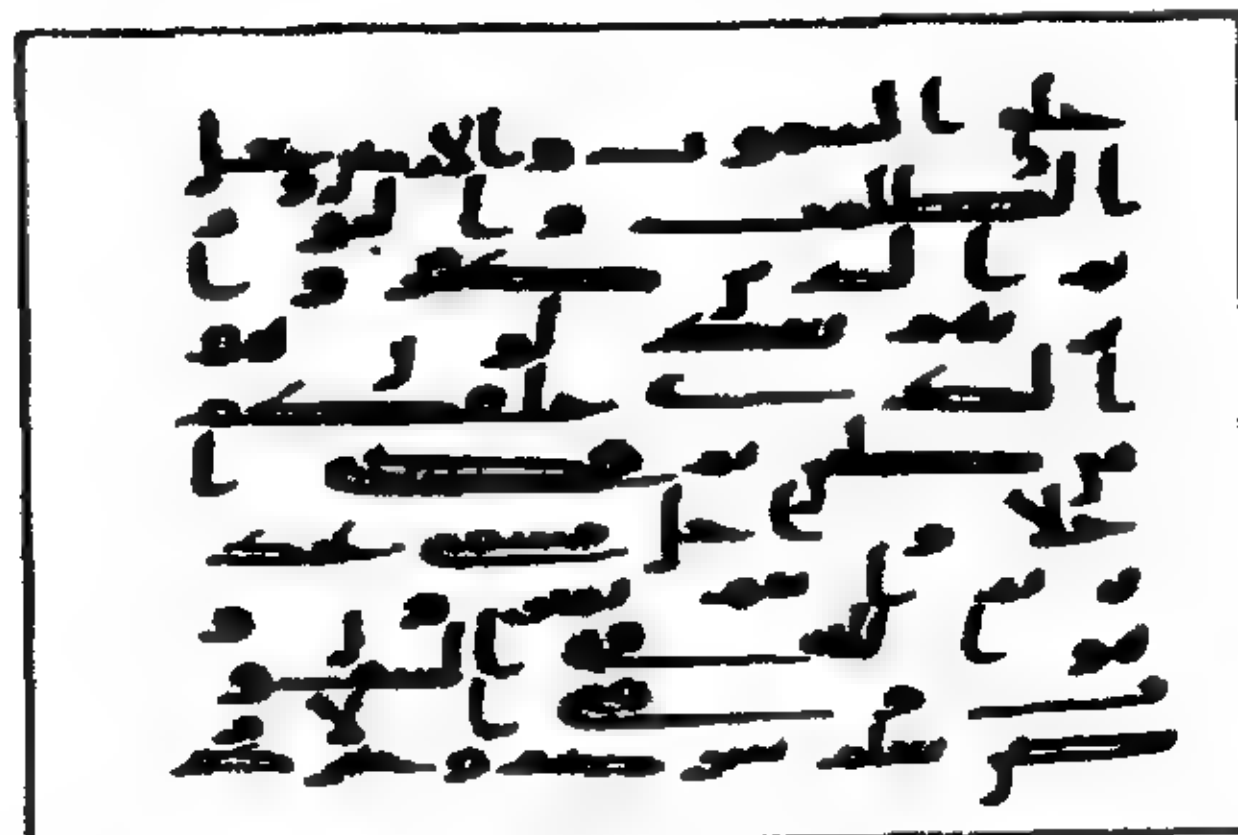 خلق السموت والارض وجعل
الظلمت والنور
ثم الذين كفروا
بربهم يعدلون هو
الذي خلقكم
من طين ثم قضى ا
جلا واجل مسمى عند
ه ثم انتم تمترون و
هو الله في السمو
ت وفي الار
ض يعلم سركم وجهر